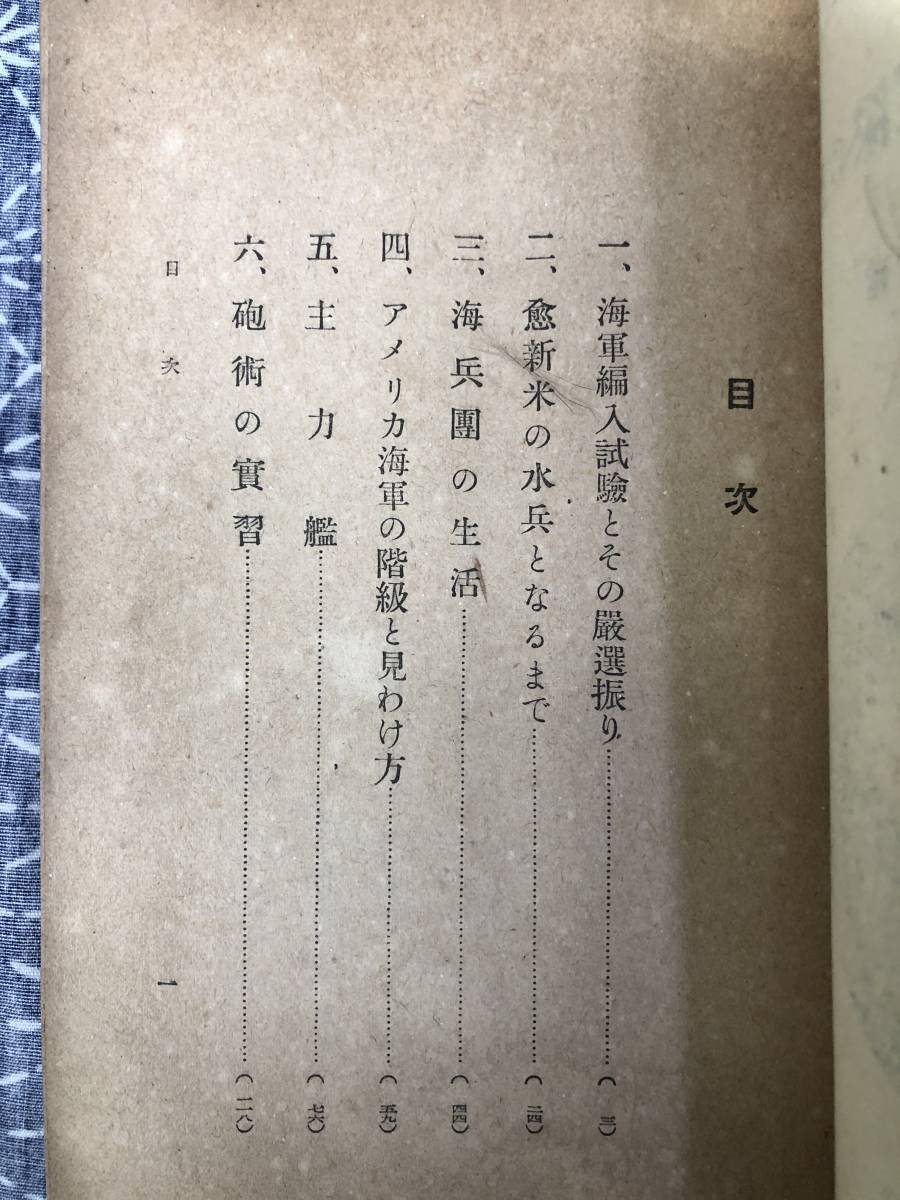 目次
一、海軍編入試驗とその嚴選振り……（三）
二、愈新米の水兵となるまで……（二四）
三、海兵團の生活……（四四）
四、アメリカ海軍の階級と見わけ方……（五九）
五、主力艦……（七六）
六、砲術の實習……（一一八）
目次 一